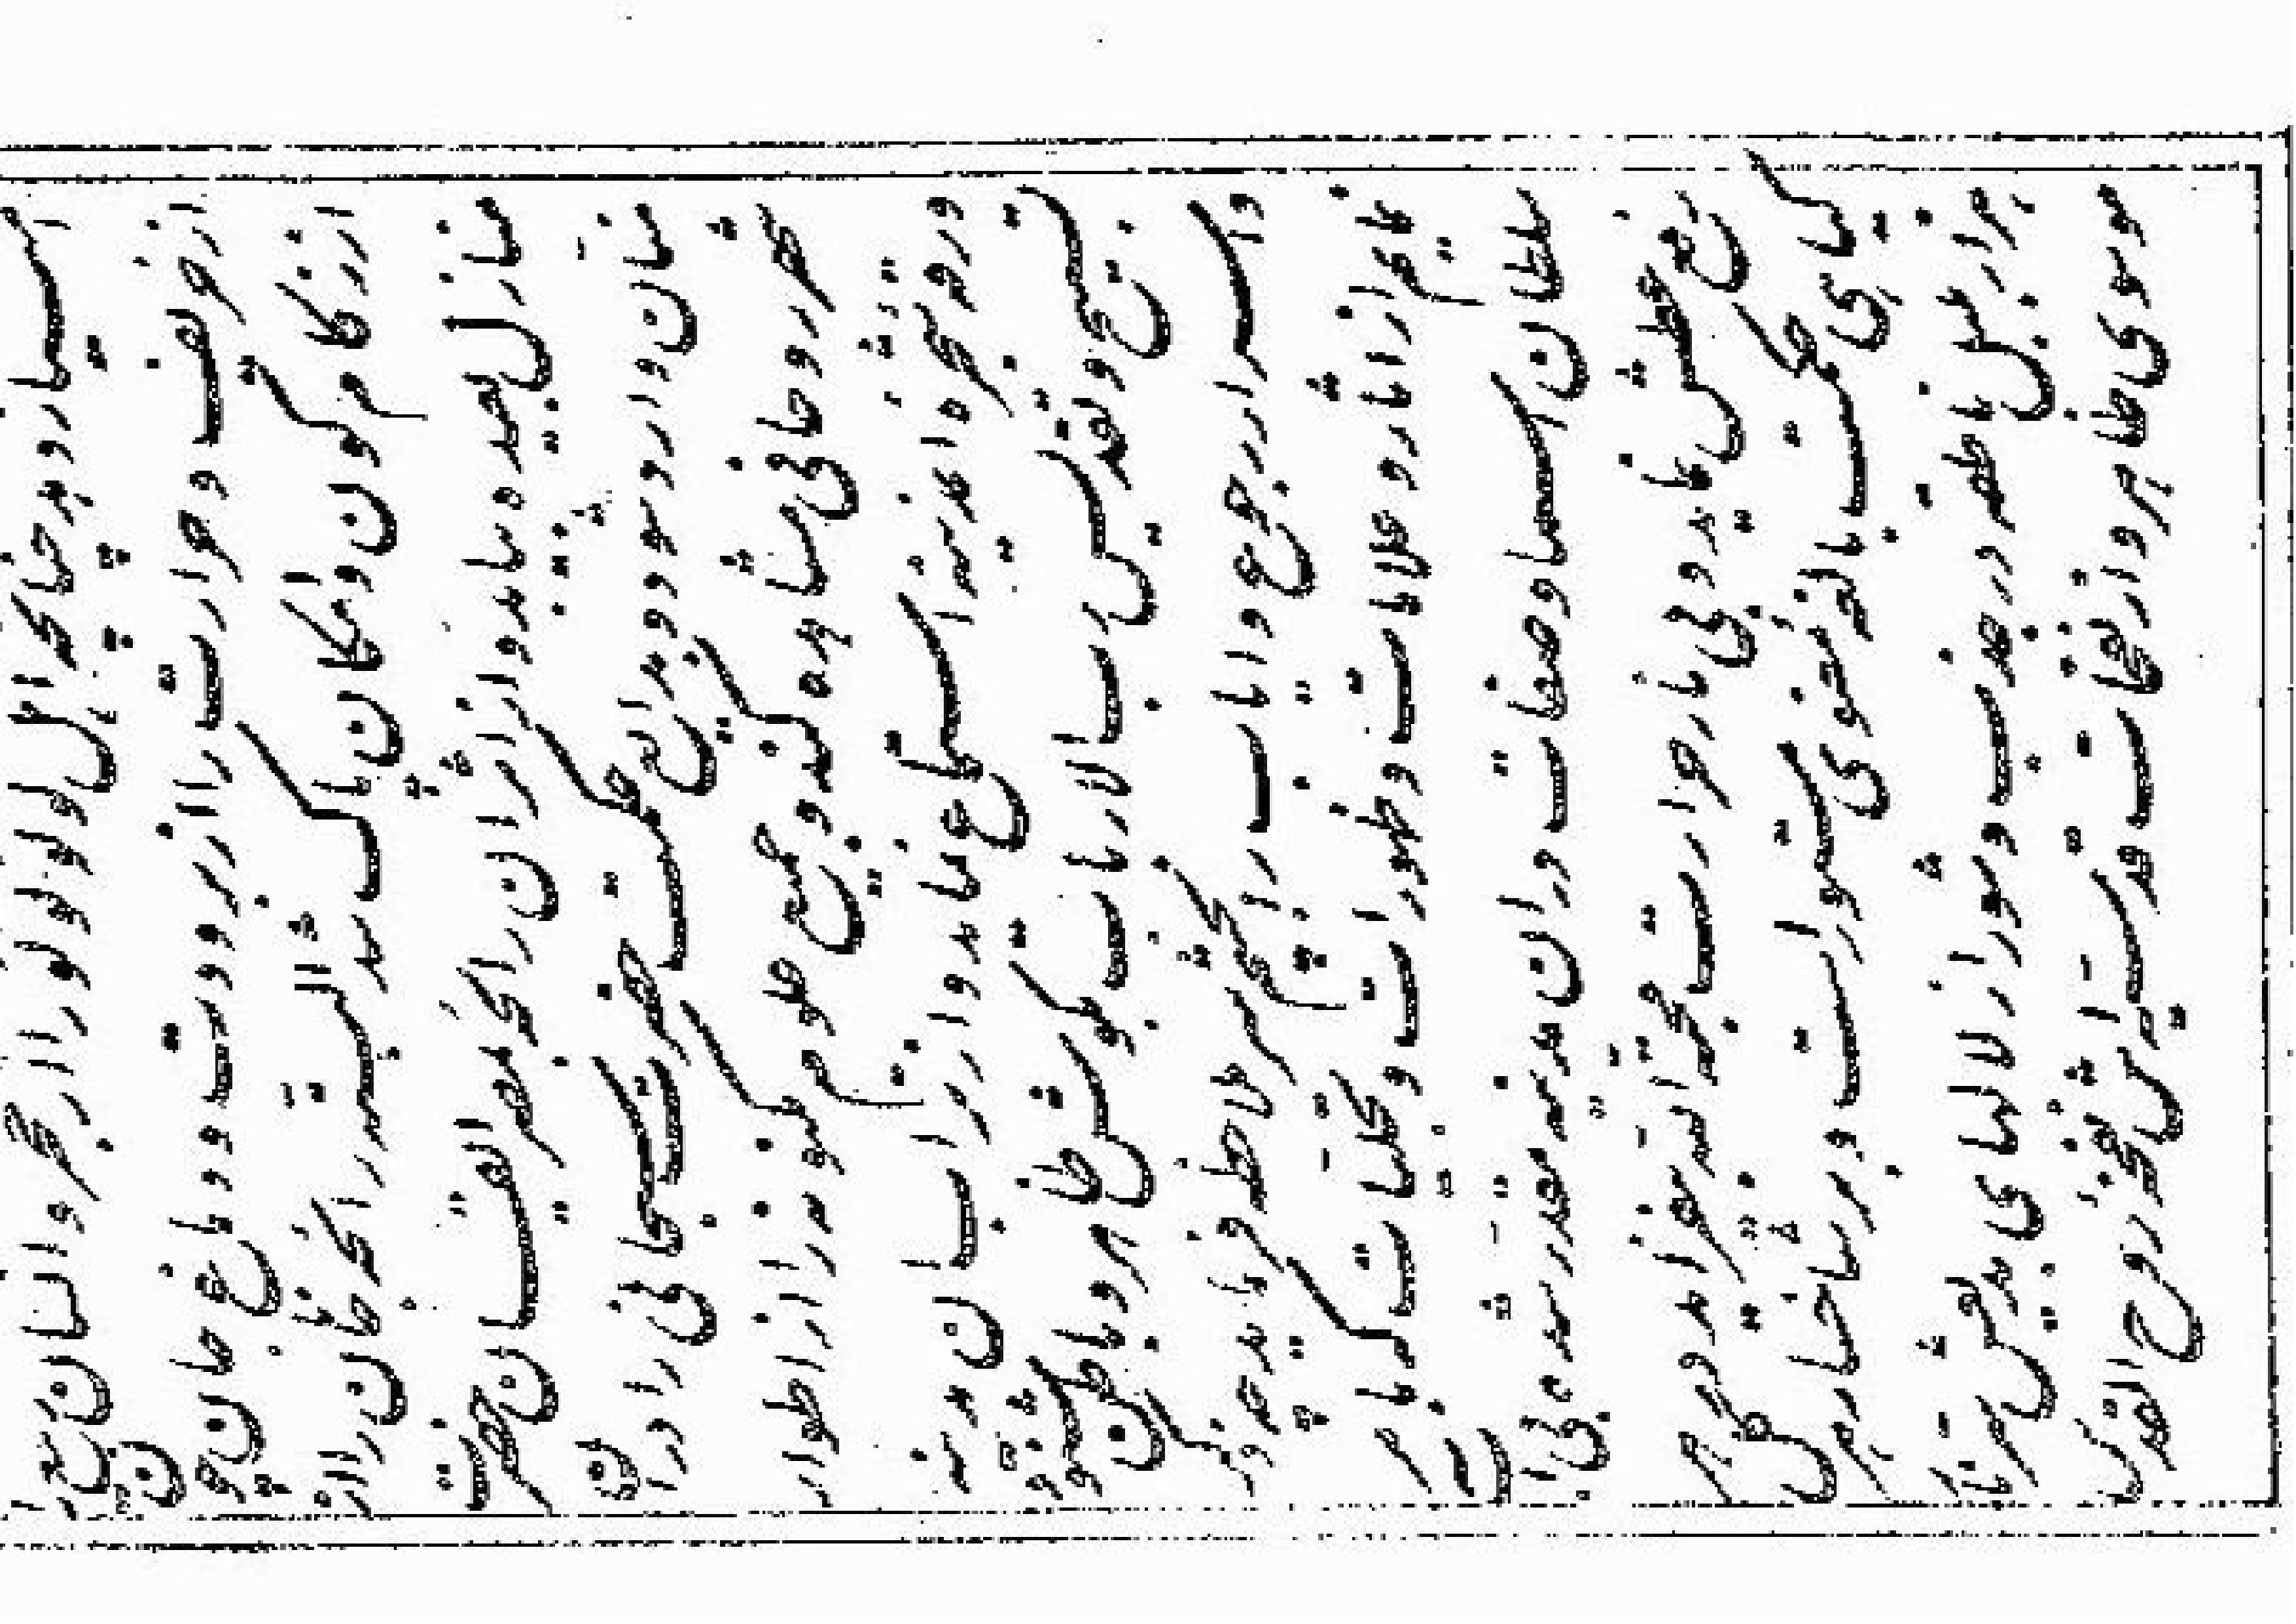 و حرارت را از برودت و دماغ جان چون
از زکام کون و امکان پاک شد البته رائحه جانان را از
منازل بعیده بیابد و از اثر آن رائحه بمصر ایقان حضرت
منان وارد شود و بدایع حکمت حضرت سبحانی را در آن
شهر روحانی مشاهده کند و جمیع علوم مکنونه را از اطوار
ورقه شجره آن مدینه استماع نماید و از تراب آن مدینه
تسبیح و تقدیس رب الارباب بگوش ظاهر و باطن شنود و
و اسرار رجوع و ایاب را بچشم سر ملاحظه فرماید چه ذکر
نمایم از آثار و علامات و ظهورات و تجلیات که بامر
سلطان اسما و صفات در آن مدینه مقدر شده بی آب
رفع عطش نماید و بی نار حرارت محبة الله بیفزاید در هر
گیاهی حکمت بالغهٔ معنوی مستور است و بر شاخسار هر گل
هزار بلبل ناطقه در جذب و شور از لالهای بدیعش سر نار
موسوی ظاهر و از نفحات قدسیه اش نفخه روح القدس